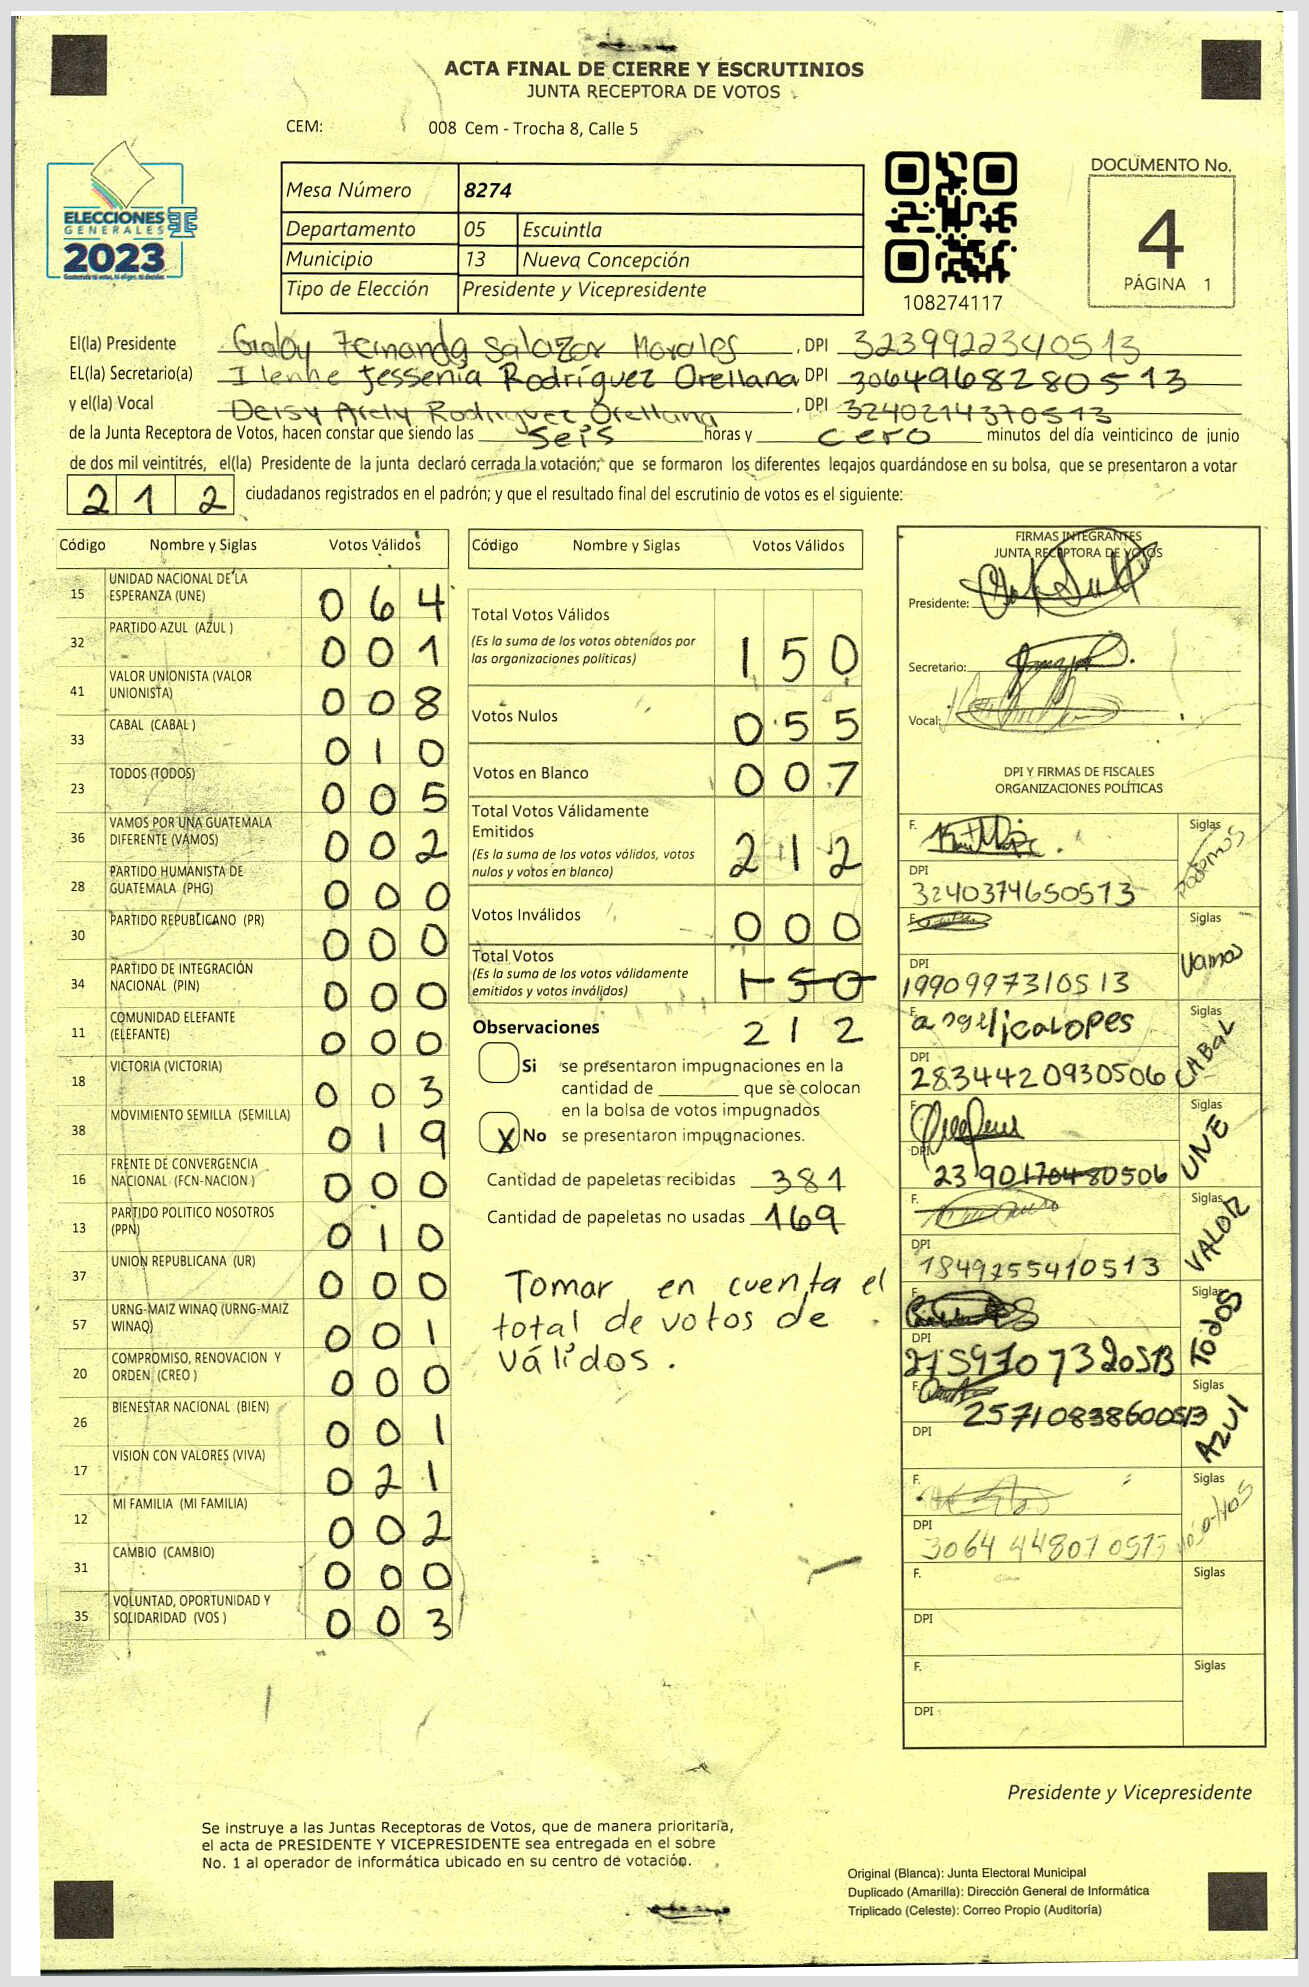 ACTA FINAL DE CIERRE Y ESCRUTINIOS
JUNTA RECEPTORA DE VOTOS
CEM: 008 Cem - Trocha 8, Calle 5
ELECCIONES
GENERALES
2023
Mesa Número 8274
Departamento 05 Escuintla
Municipio 13 Nueva Concepción
Tipo de Elección Presidente y Vicepresidente
108274117
DOCUMENTO No.
4
PÁGINA 1
El(la) Presidente Graby Fernanda Salazar Morales, DPI 3239922340513
EL(la) Secretario(a) Ilenhe Jessenia Rodríguez Orellana DPI 3064968280513
y el(la) Vocal Deisy Arely Rodriguez Orellana, DPI 3240214370513
de la Junta Receptora de Votos, hacen constar que siendo las seis horas y cero minutos del día veinticinco de junio
de dos mil veintitrés, el(la) Presidente de la junta declaró cerrada la votación; que se formaron los diferentes legajos guardándose en su bolsa, que se presentaron a votar
212 ciudadanos registrados en el padrón; y que el resultado final del escrutinio de votos es el siguiente:
Código Nombre y Siglas Votos Válidos
15 UNIDAD NACIONAL DE LA ESPERANZA (UNE) 064
32 PARTIDO AZUL (AZUL ) 001
41 VALOR UNIONISTA (VALOR UNIONISTA) 008
33 CABAL (CABAL ) 010
23 TODOS (TODOS) 005
36 VAMOS POR UNA GUATEMALA DIFERENTE (VAMOS) 002
28 PARTIDO HUMANISTA DE GUATEMALA (PHG) 000
30 PARTIDO REPUBLICANO (PR) 000
34 PARTIDO DE INTEGRACIÓN NACIONAL (PIN) 000
11 COMUNIDAD ELEFANTE (ELEFANTE) 000
18 VICTORIA (VICTORIA) 003
38 MOVIMIENTO SEMILLA (SEMILLA) 019
16 FRENTE DE CONVERGENCIA NACIONAL (FCN-NACION ) 000
13 PARTIDO POLITICO NOSOTROS (PPN) 010
37 UNION REPUBLICANA (UR) 000
57 URNG-MAIZ WINAQ (URNG-MAIZ WINAQ) 001
20 COMPROMISO, RENOVACION Y ORDEN (CREO ) 000
26 BIENESTAR NACIONAL (BIEN) 001
17 VISION CON VALORES (VIVA) 021
12 MI FAMILIA (MI FAMILIA) 002
31 CAMBIO (CAMBIO) 000
35 VOLUNTAD, OPORTUNIDAD Y SOLIDARIDAD (VOS ) 003
Código Nombre y Siglas Votos Válidos
Total Votos Válidos 150
(Es la suma de los votos obtenidos por
las organizaciones políticas)
Votos Nulos 055
Votos en Blanco 007
Total Votos Válidamente
Emitidos 212
(Es la suma de los votos válidos, votos
nulos y votos en blanco)
Votos Inválidos 000
Total Votos
(Es la suma de los votos válidamente
emitidos y votos inválidos) 150
212
Observaciones
Si se presentaron impugnaciones en la
cantidad de ________ que se colocan
en la bolsa de votos impugnados
X No se presentaron impugnaciones.
Cantidad de papeletas recibidas 381
Cantidad de papeletas no usadas 169
Tomar en cuenta el
total de votos de
válidos.
FIRMAS INTEGRANTES
JUNTA RECEPTORA DE VOTOS
Presidente:
Secretario:
Vocal:
DPI Y FIRMAS DE FISCALES
ORGANIZACIONES POLÍTICAS
F. Siglas Podemos
DPI 3240374650513
F. Siglas Vamos
DPI 1990997310513
F. angelica Lopes Siglas CABAL
DPI 2834420930506
F. Siglas UNE
DPI 2390170480506
F. Siglas VALOR
DPI 1849755410513
F. Siglas TODOS
DPI 2759707320513
F. Siglas AZUl
DPI 25710838600513
F. Siglas
DPI 3064448070513
F. Siglas
DPI
F. Siglas
DPI
Presidente y Vicepresidente
Se instruye a las Juntas Receptoras de Votos, que de manera prioritaria,
el acta de PRESIDENTE Y VICEPRESIDENTE sea entregada en el sobre
No. 1 al operador de informática ubicado en su centro de votación.
Original (Blanca): Junta Electoral Municipal
Duplicado (Amarilla): Dirección General de Informática
Triplicado (Celeste): Correo Propio (Auditoría)